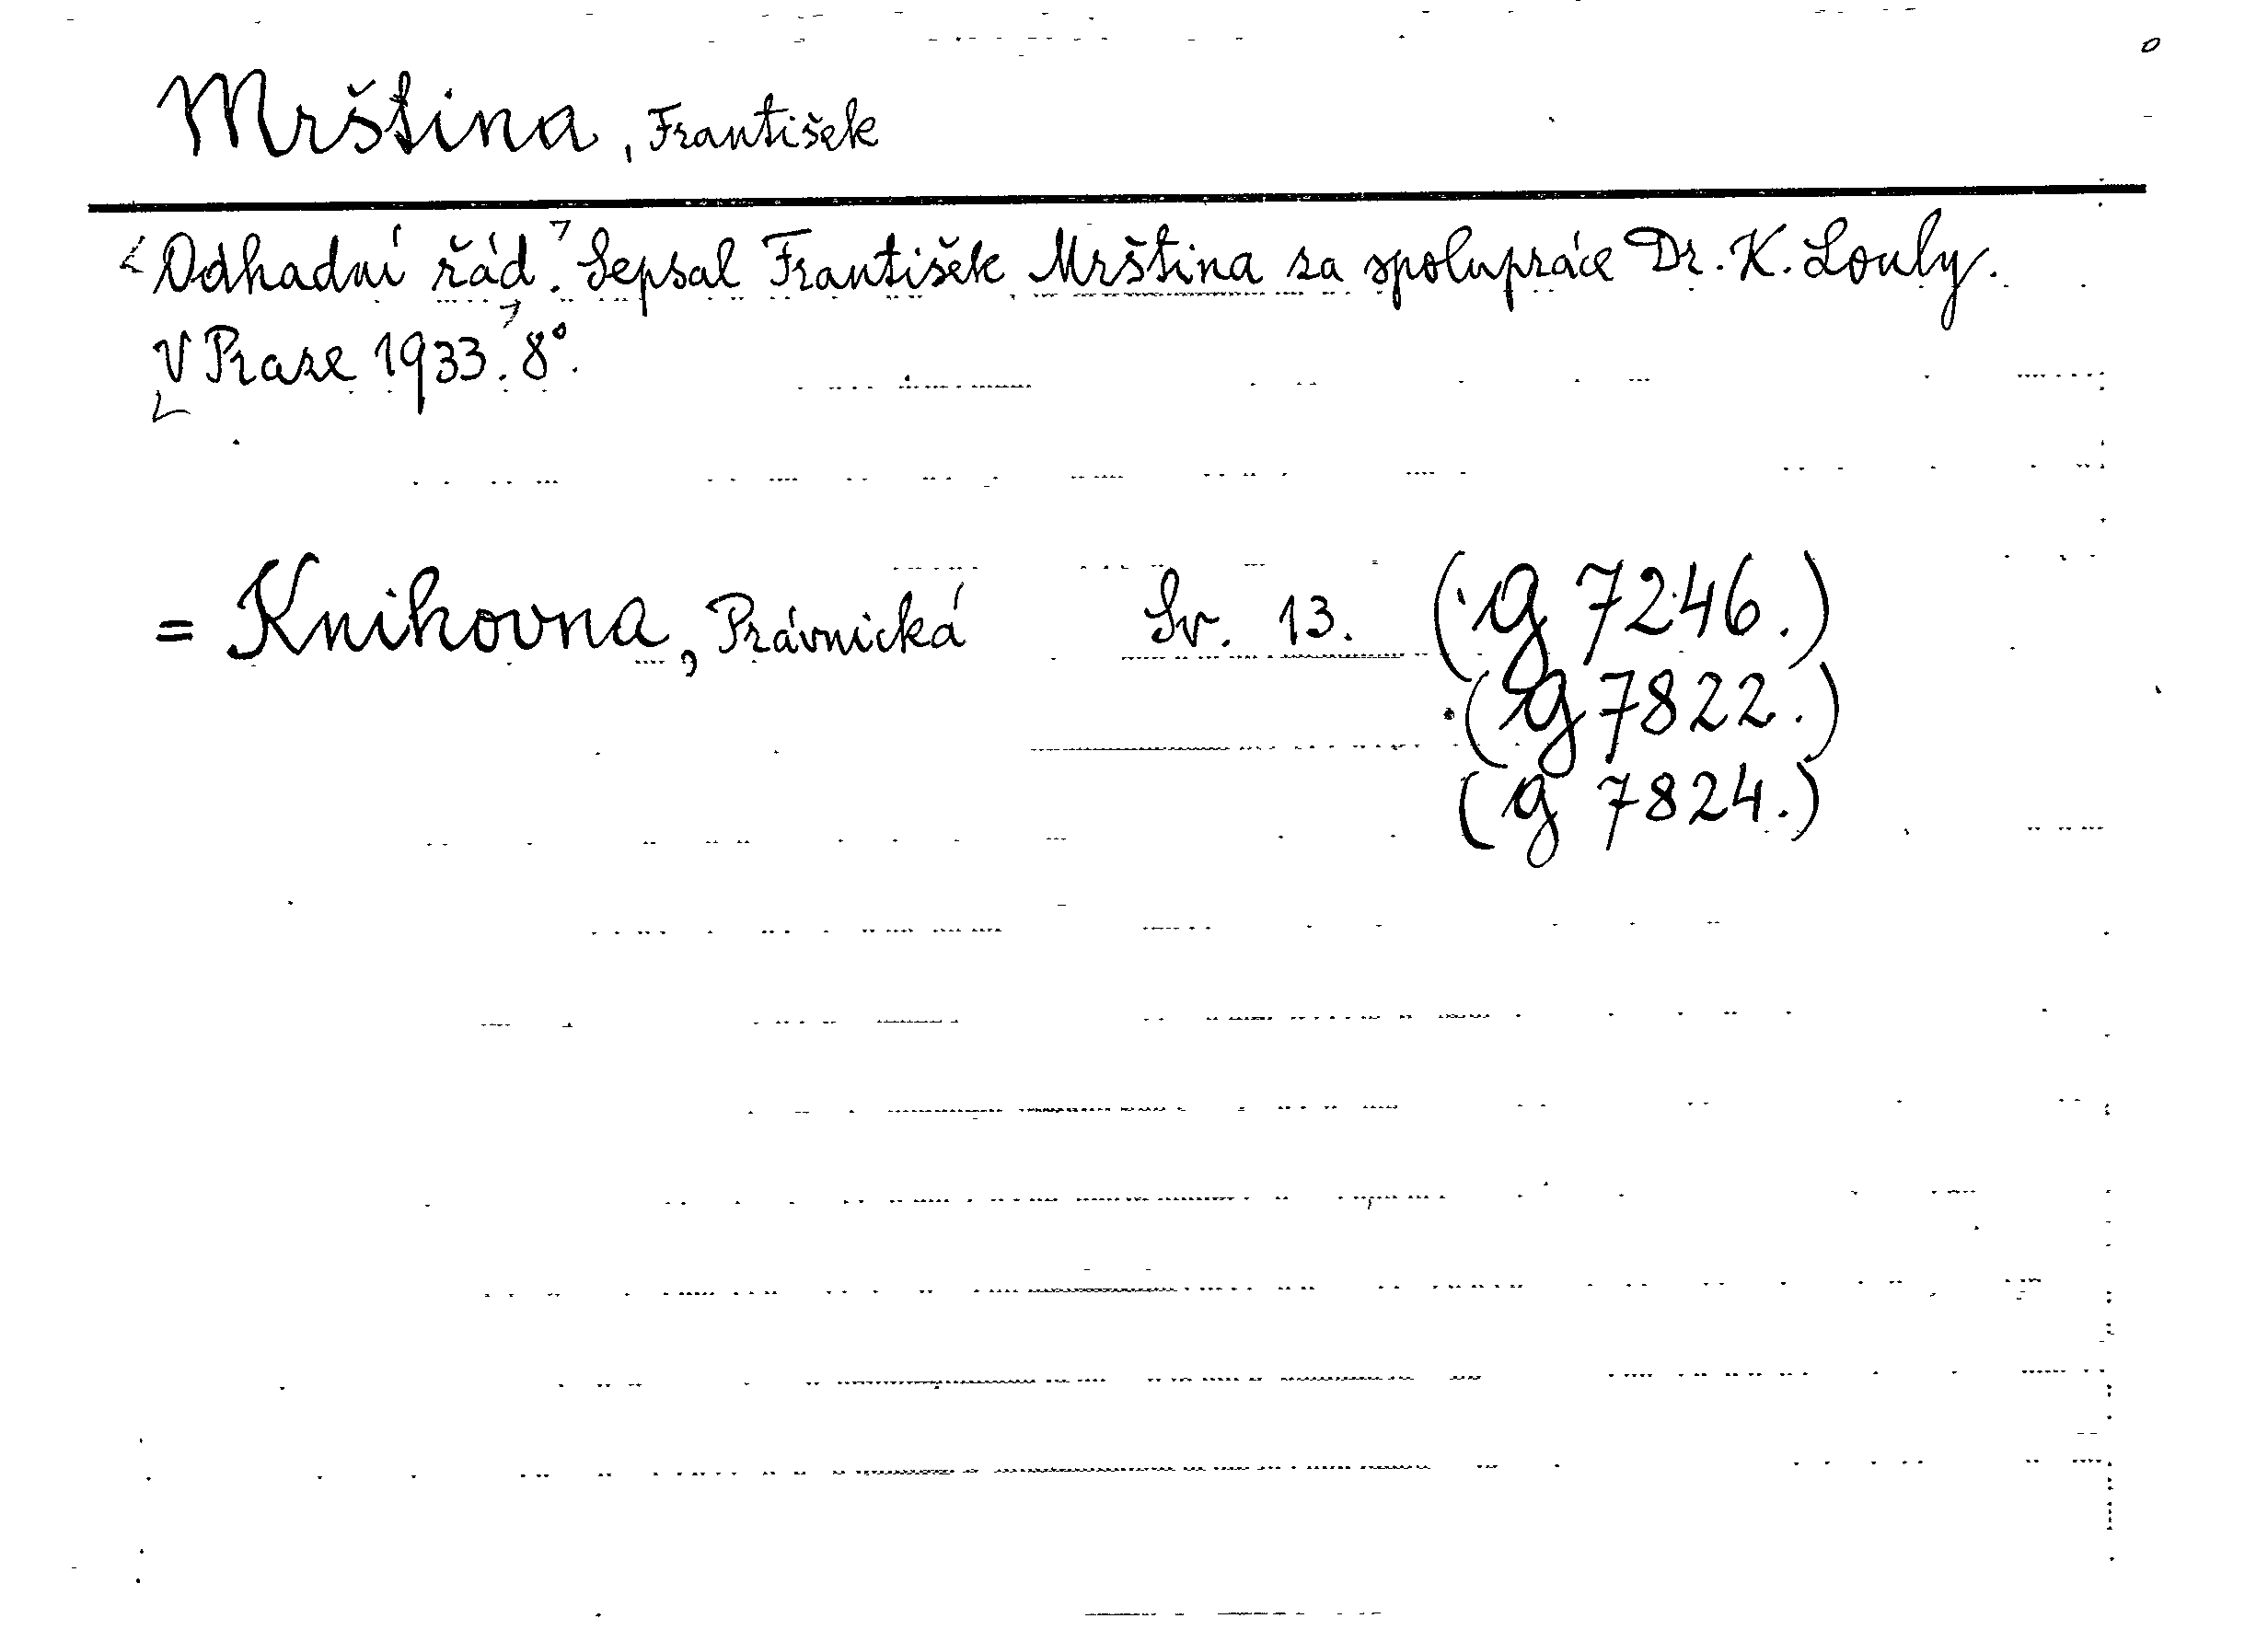 Mrština, František
<Odhadní řád.> Sepsal František Mrština za spolupráce Dr. K. Louly.
<V Praze 1933.> 8°.
= Knihovna, Právnická Sv. 13. (g 7246.)
(g 7822.)
(g 7824.)